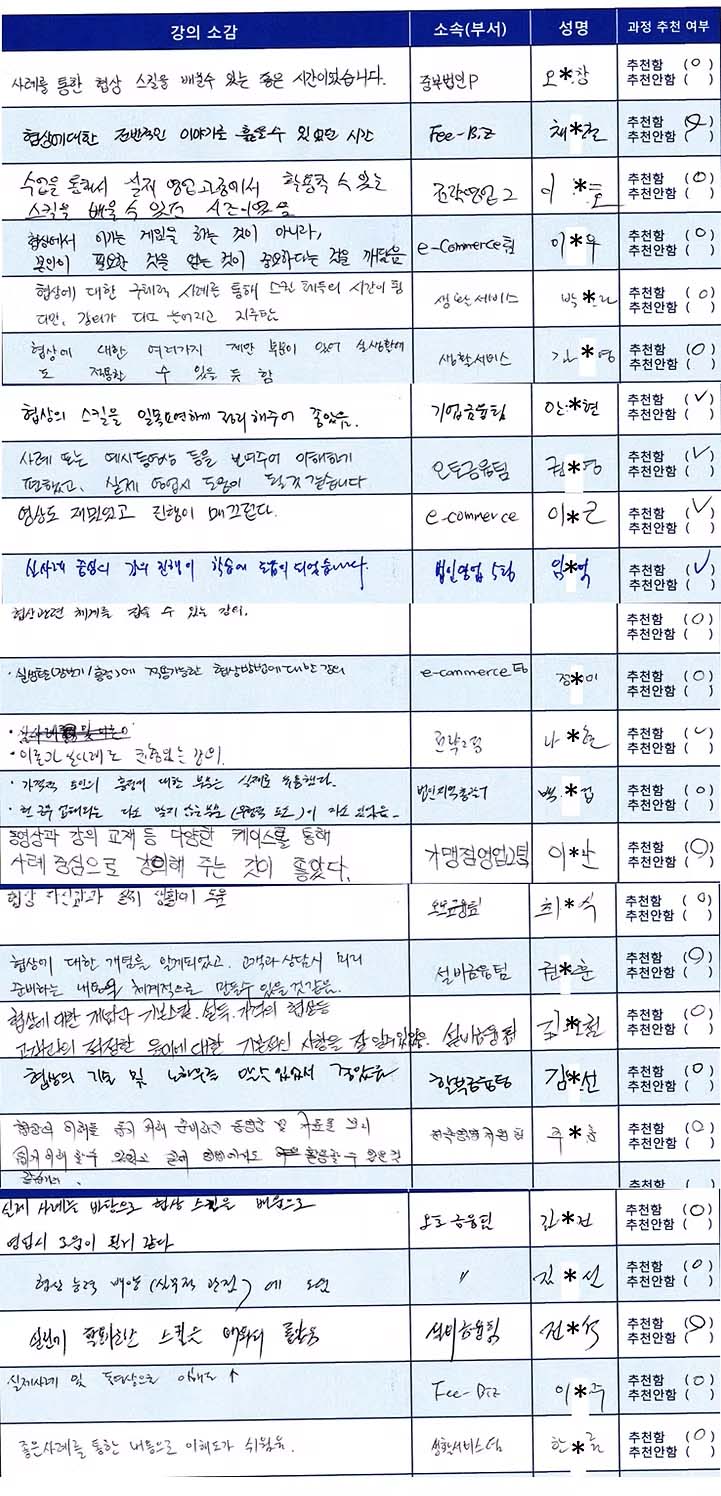 강의 소감 소속(부서) 성명 과정 추천 여부
사례를 통한 협상 스킬을 배울수 있는 좋은 시간이었습니다. 중부법인P 오*창 추천함 (O)
추천안함 ( )
협상에 대한 전반적인 이야기를 들을수 있었던 시간 Fee-Biz 채*철 추천함 (O)
추천안함 ( )
수업을 통해서 실제 영업 고충에서 활용할 수 있는
스킬을 배울 수 있던 시간이었음 전략영업2 이*훈 추천함 (O)
추천안함 ( )
협상에서 이기는 게임을 하는 것이 아니라,
본인이 필요한 것을 얻는 것이 중요하다는 것을 깨달음 e-Commerce팀 이*우 추천함 (O)
추천안함 ( )
협상에 대한 구체적 사례를 통해 스킬 체득의 시간이 됨
다만, 강의가 다소 늘어지고 지루함 생활서비스 박* 추천함 (O)
추천안함 ( )
협상에 대한 여러가지 제반 부분이 있어 실생활에
도 적용할 수 있을 듯 함 생활서비스 김*영 추천함 (O)
추천안함 ( )
협상의 스킬을 일목요연하게 정리해주어 좋았음. 기업금융팀 안*현 추천함 (✓)
추천안함 ( )
사례 또는 예시동영상 등을 보여주어 이해하기
편했고, 실제 영업시 도움이 될것 같습니다 오토금융팀 권*영 추천함 (✓)
추천안함 ( )
영상도 재밌었고 진행이 매끄럽다. e-commerce 이*근 추천함 (✓)
추천안함 ( )
실사례 중심의 강의 진행이 학습에 도움이 되었습니다. 법인영업 5팀 임*혁 추천함 (✓)
추천안함 ( )
협상관련 체계를 잡을 수 있는 강의. 추천함 (O)
추천안함 ( )
·실생활(장보기/흥정)에 적용가능한 협상방법에 대한 강의 e-commerce팀 정*미 추천함 (O)
추천안함 ( )
·이론과 실사례도 균형있는 강의. 나*현 추천함 (✓)
추천안함 ( )
·가격적 요인의 흥정에 대한 부분은 실제로 유용했다.
·현 업무 맞지 않는 부분 이 다소 있었음. 백*겸 추천함 (O)
추천안함 ( )
동영상과 강의 교재 등 다양한 케이스를 통해
사례 중심으로 강의해 주는 것이 좋았다. 가맹점영업2팀 이*산 추천함 (O)
추천안함 ( )
협상 실제 생활에 도움 오토금융팀 최*식 추천함 (O)
추천안함 ( )
협상에 대한 개념을 알게되었고. 고객과 상담시 미리
준비하는 내용을 체계적으로 만들수 있을것 같음. 설비금융팀 권*훈 추천함 (O)
추천안함 ( )
협상에 대한 개념과 기본스킬. 설득. 가격의 협상등
고객과의 적절한 응대에 대한 기본적인 사항을 잘 알려주었음. 설비금융팀 추천함 (O)
추천안함 ( )
협상의 기술 및 노하우를 알수 있어서 좋았음 할부금융팀 김*선 추천함 (O)
추천안함 ( )
협상의 이해를 돕기 위해 준비하신 동영상 및 자료를 보니
쉽게 이해 할수 있었고 실제 활용할 수 있을것
같습니다. 주*훈 추천함 (O)
추천안함 ( )
추천함 (O)
실제 사례를 바탕으로 협상 스킬을 배움으로
영업시 도움이 된거 같다 오토금융팀 김*진 추천함 (O)
추천안함 ( )
협상 능력 배양 (실무적 관점)에 도움 〃 김*선 추천함 (O)
추천안함 ( )
스킬을 설비금융팀 전*석 추천함 (O)
추천안함 ( )
실제사례 및 동영상으로 이해도 ↑ Fee-Biz 이*주 추천함 (O)
추천안함 ( )
좋은사례를 통한 내용으로 이해도가 쉬웠음. 생활서비스팀 한*름 추천함 (O)
추천안함 ( )